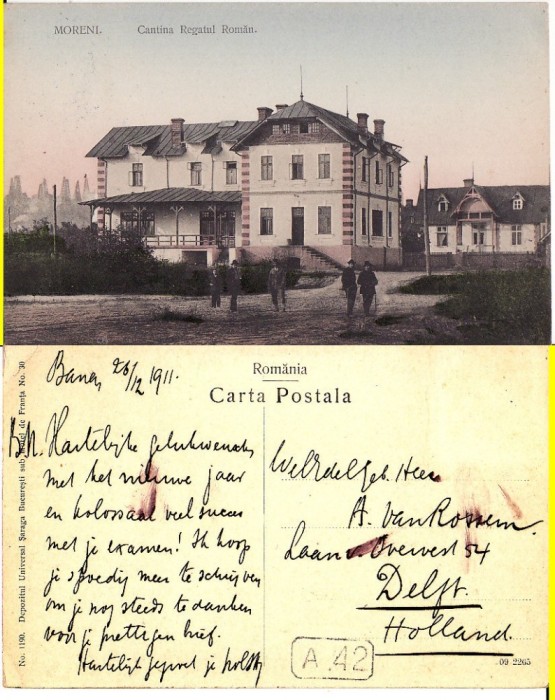 MORENI. Cantina Regatul Român.
No. 1190. Depozitul Universal Șaraga București sub Hotel de Franța No. 30
26/12 1911.
România
Carta Postala
Hartelijke gelukwensch
met het nieuwe jaar
en kolossaal veel succes
met je examen! Ik hoop
je spoedig meer te schrijven
om je nog steeds te danken
voor je prettigen brief.
Hartelijk gegroet je
WelEdelGeb. Heer
A. Van Rossem.
Laan v. Overvest 54
Delft.
Holland.
A. 42
09 2265